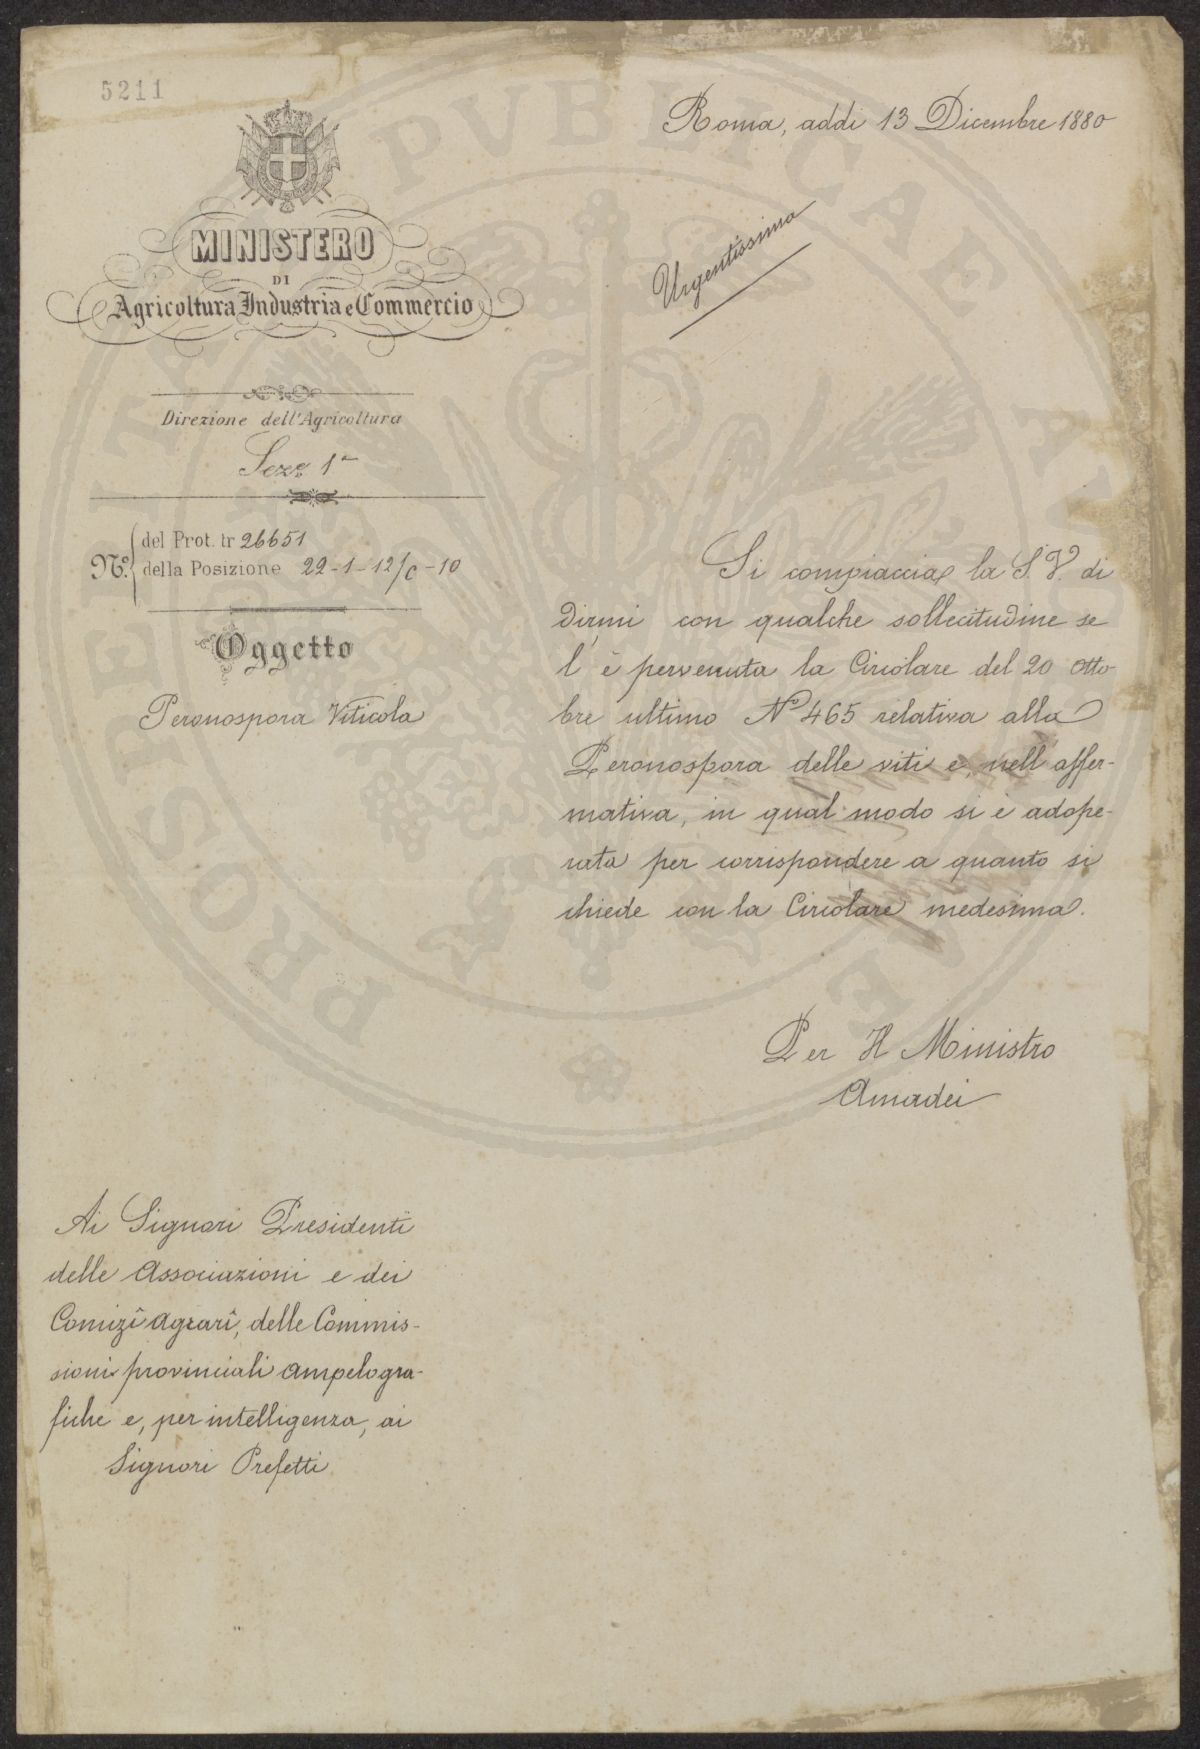 5211
MINISTERO
DI
Agricoltura Industria e Commercio
Direzione dell'Agricoltura
Sez.e 1a
N.o del Prot. tr 26651
della Posizione 22-1-12/C-10
Oggetto
Peronospora Viticola
Roma, addi 13 Dicembre 1880
Urgentissima
Si compiaccia la S. V. di
dirmi con qualche sollecitudine se
l'è pervenuta la Circolare del 20 otto-
bre ultimo No 465 relativa alla
Peronospora delle viti e, nell'affer-
mativa, in qual modo si è adope-
rata per corrispondere a quanto si
chiede con la Circolare medesima.
Per Il Ministro
Amadei
Ai Signori Presidenti
delle Associazioni e dei
Comizî agrarî, delle Commis-
sioni provinciali ampelogra-
fiche e, per intelligenza, ai
Signori Prefetti